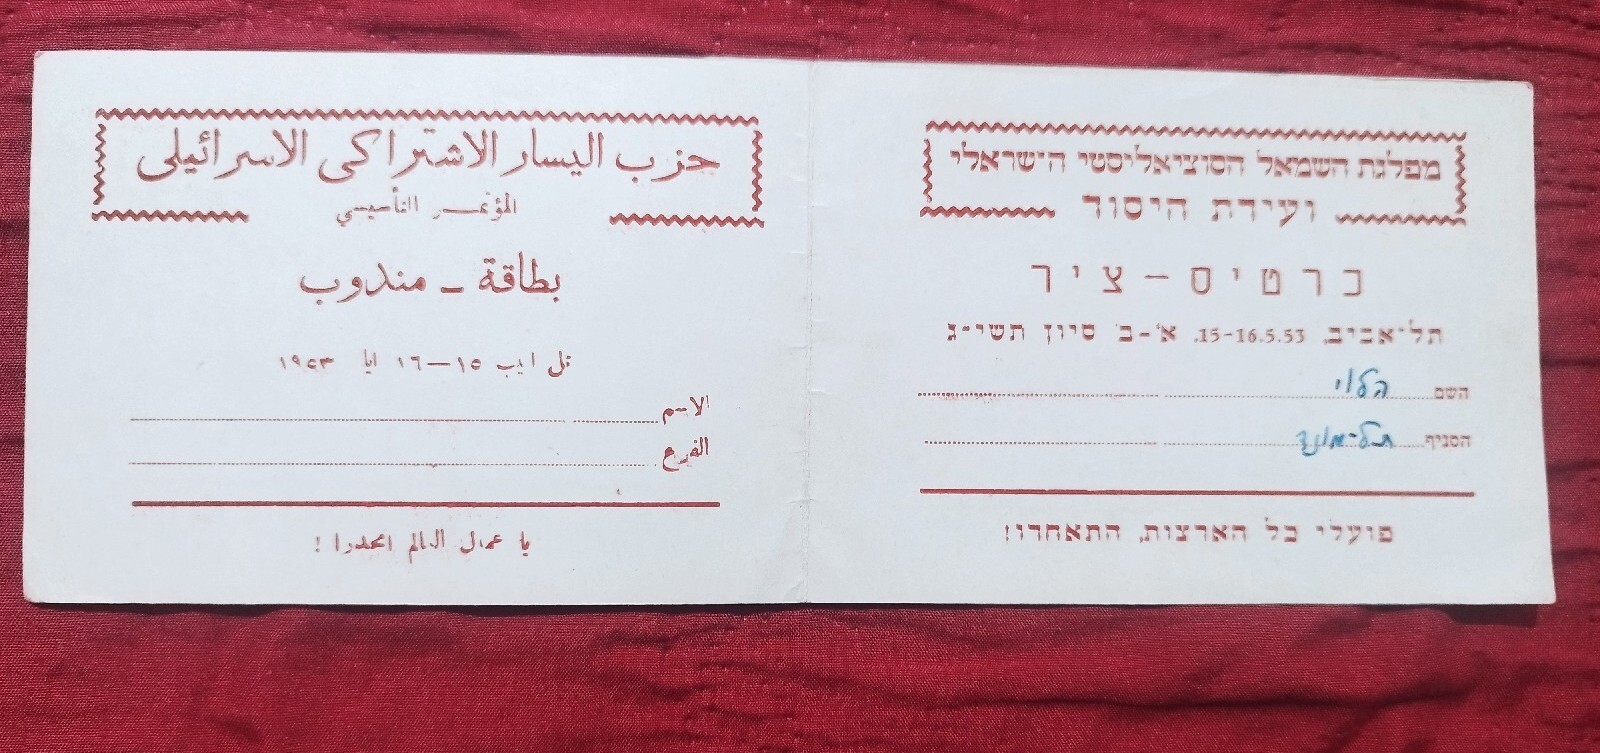 מפלגת השמאל הסוציאליסטי הישראלי
ועידת היסוד
כרטיס-ציר
תל-אביב, 15-16.5.53, א'-ב' סיון תשי"ג
השם הלוי
הסניף תל-מונד
פועלי כל הארצות, התאחדו!
حزب اليسار الاشتراكى الاسرائيلى
المؤتمر التأسيسي
بطاقة - مندوب
تل ابيب ١٥-١٦ ايا ١٩٥٣
الاسم
الفرع
يا عمال العالم اتحدوا !